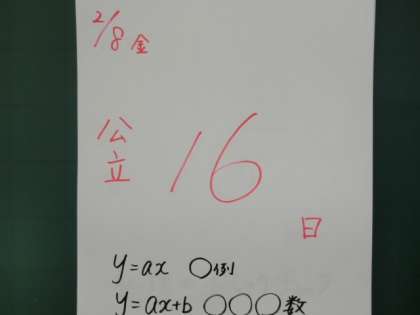 2/8金
公立 16日
y=ax ○例
y=ax+b ○○○数